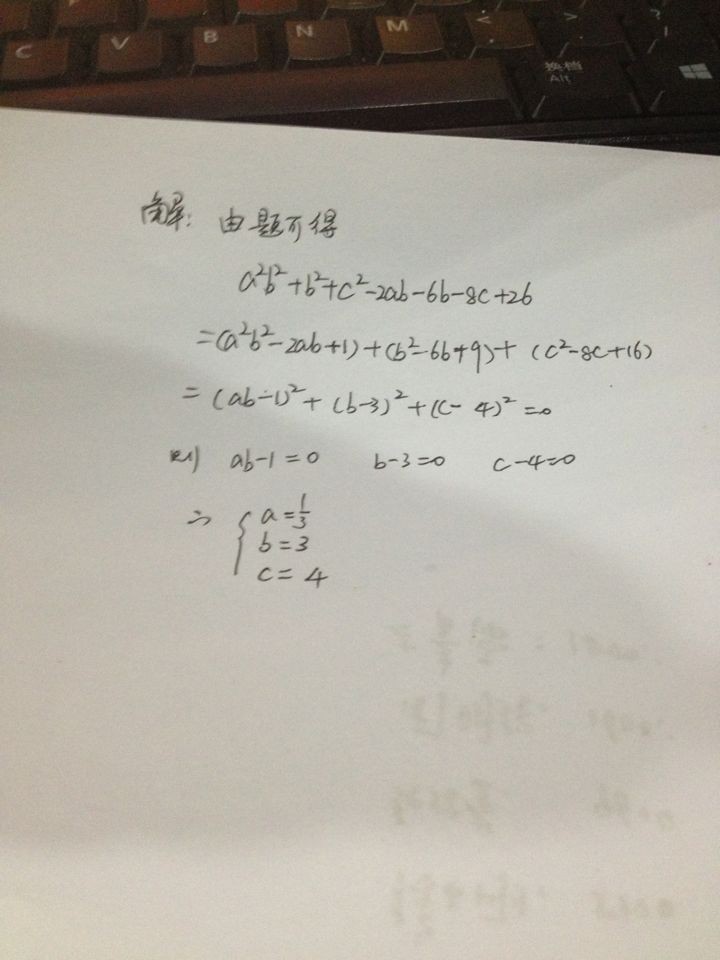 C V B N M < > ?
换档
Alt
解: 由题可得
a²b²+b²+c²-2ab-6b-8c+26
=(a²b²-2ab+1)+(b²-6b+9)+(c²-8c+16)
=(ab-1)²+(b-3)²+(c-4)²=0
则 ab-1=0 b-3=0 c-4=0
∴ { a=1/3
b=3
c=4